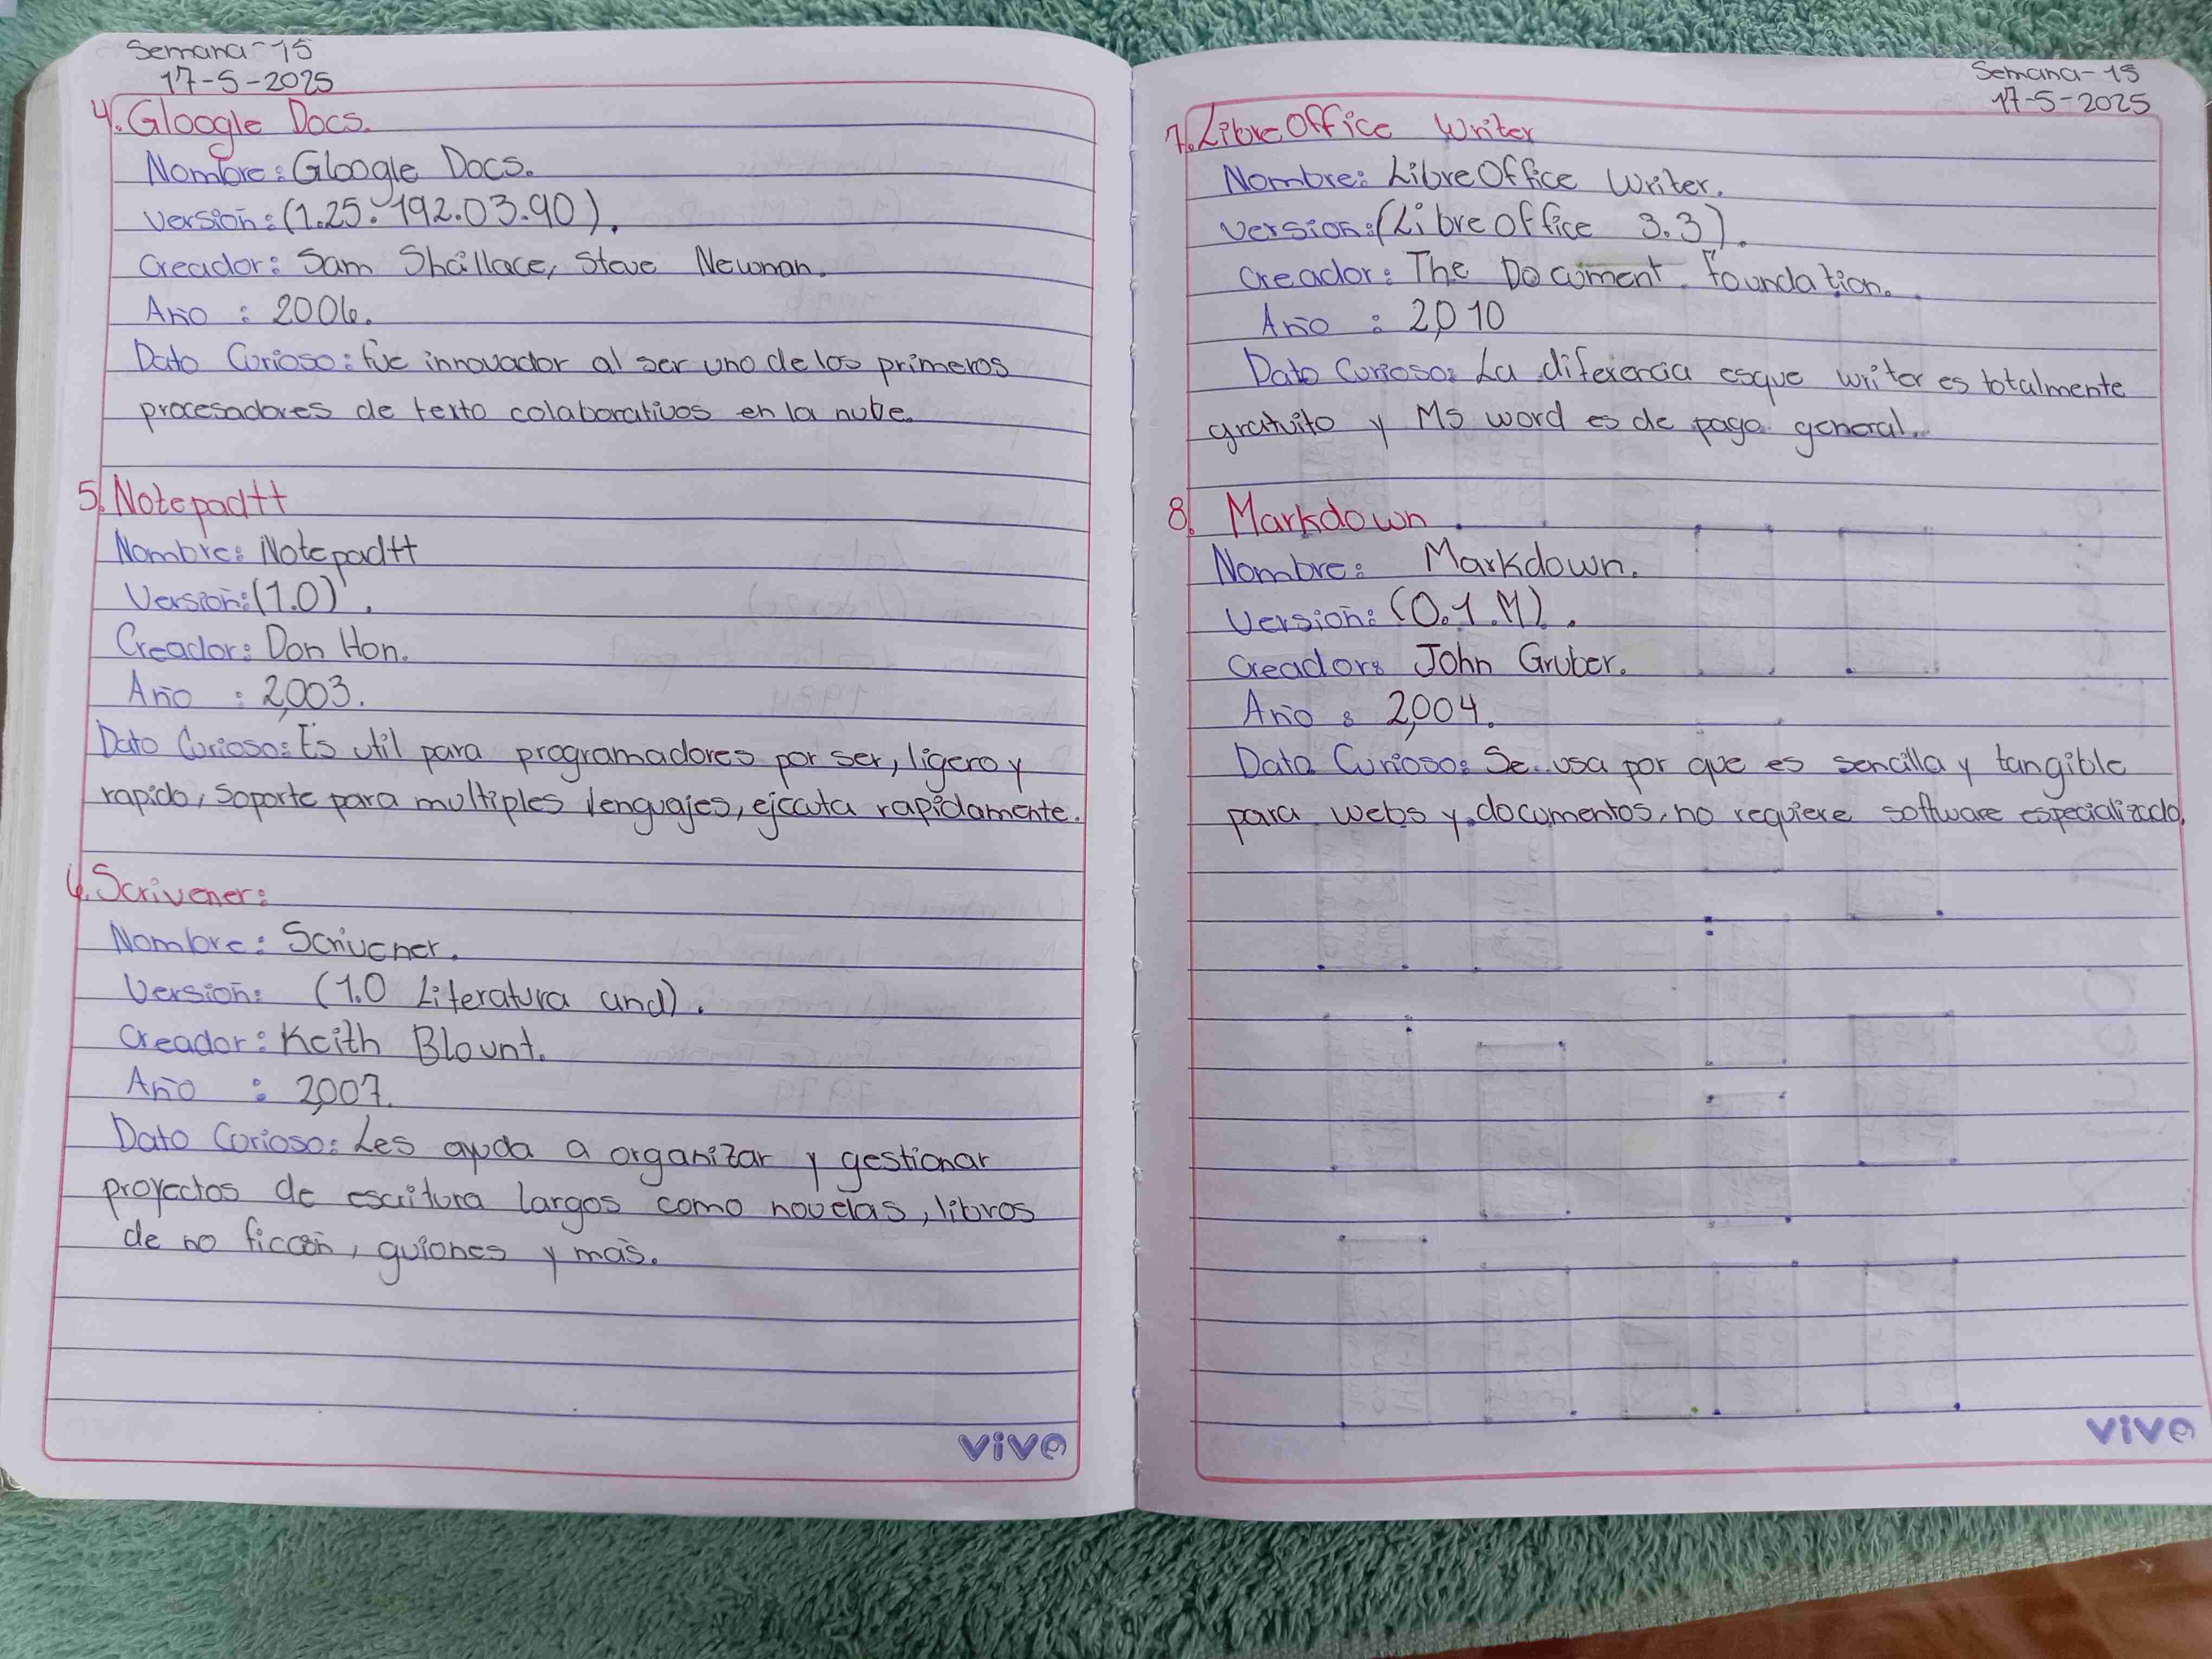 Semana-15
17-5-2025
4. Gloogle Docs.
Nombre: Gloogle Docs.
Versión: (1.25.192.03.90).
Creador: Sam Shaillace, Steve Newman.
Año : 2006.
Dato Curioso: fue innovador al ser uno de los primeros
procesadores de texto colaborativos en la nube.
5. Notepad++
Nombre: Notepad++
Versión: (1.0).
Creador: Don Hon.
Año : 2,003.
Dato Curioso: Es util para programadores por ser, ligero y
rapido, soporte para multiples lenguajes, ejecuta rapidamente.
6. Scrivener:
Nombre: Scrivener.
Versión: (1.0 Literatura and).
Creador: Keith Blount.
Año : 2,007.
Dato Curioso: Les ayuda a organizar y gestionar
proyectos de escritura largos como novelas, libros
de no ficción, guiones y más.
vive
Semana-15
17-5-2025
7. LibreOffice Writer
Nombre: LibreOffice Writer.
Versión: (Libreoffice 3.3).
Creador: The Document Foundation.
Año : 2,010
Dato Curioso: La diferencia esque writer es totalmente
gratuito y Ms word es de pago general.
8. Markdown.
Nombre: Markdown.
Versión: (0.1.M).
Creador: John Gruber.
Año : 2,004.
Dato Curioso: Se usa por que es sencilla y tangible
para webs y documentos, no requiere software especializado.
vive